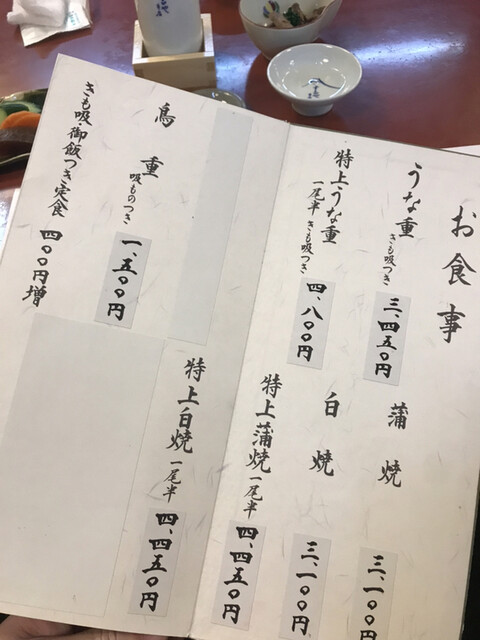 お食事
うな重 きも吸つき
三、四五〇円
特上うな重
一尾半 きも吸つき
四、八〇〇円
蒲焼
三、一〇〇円
白焼
三、一〇〇円
特上蒲焼 一尾半
四、四五〇円
特上白焼 一尾半
四、四五〇円
鳥重
吸ものつき
一、五〇〇円
きも吸・御飯つき定食 四〇〇円増